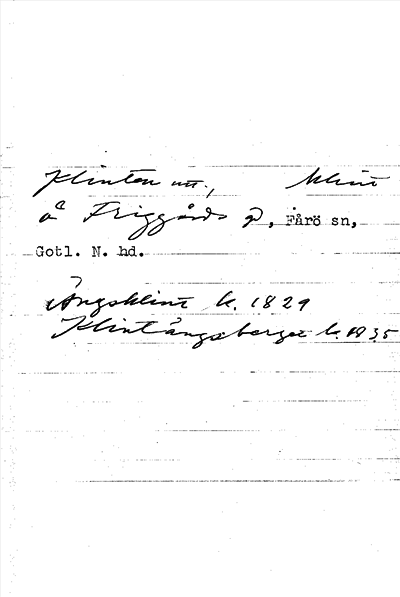 Klinten nu., klint
å Friggårds P, Fårö sn,
Gotl. N. hd.
Ängsklint k. 1829
Klintängsberget k. 1835